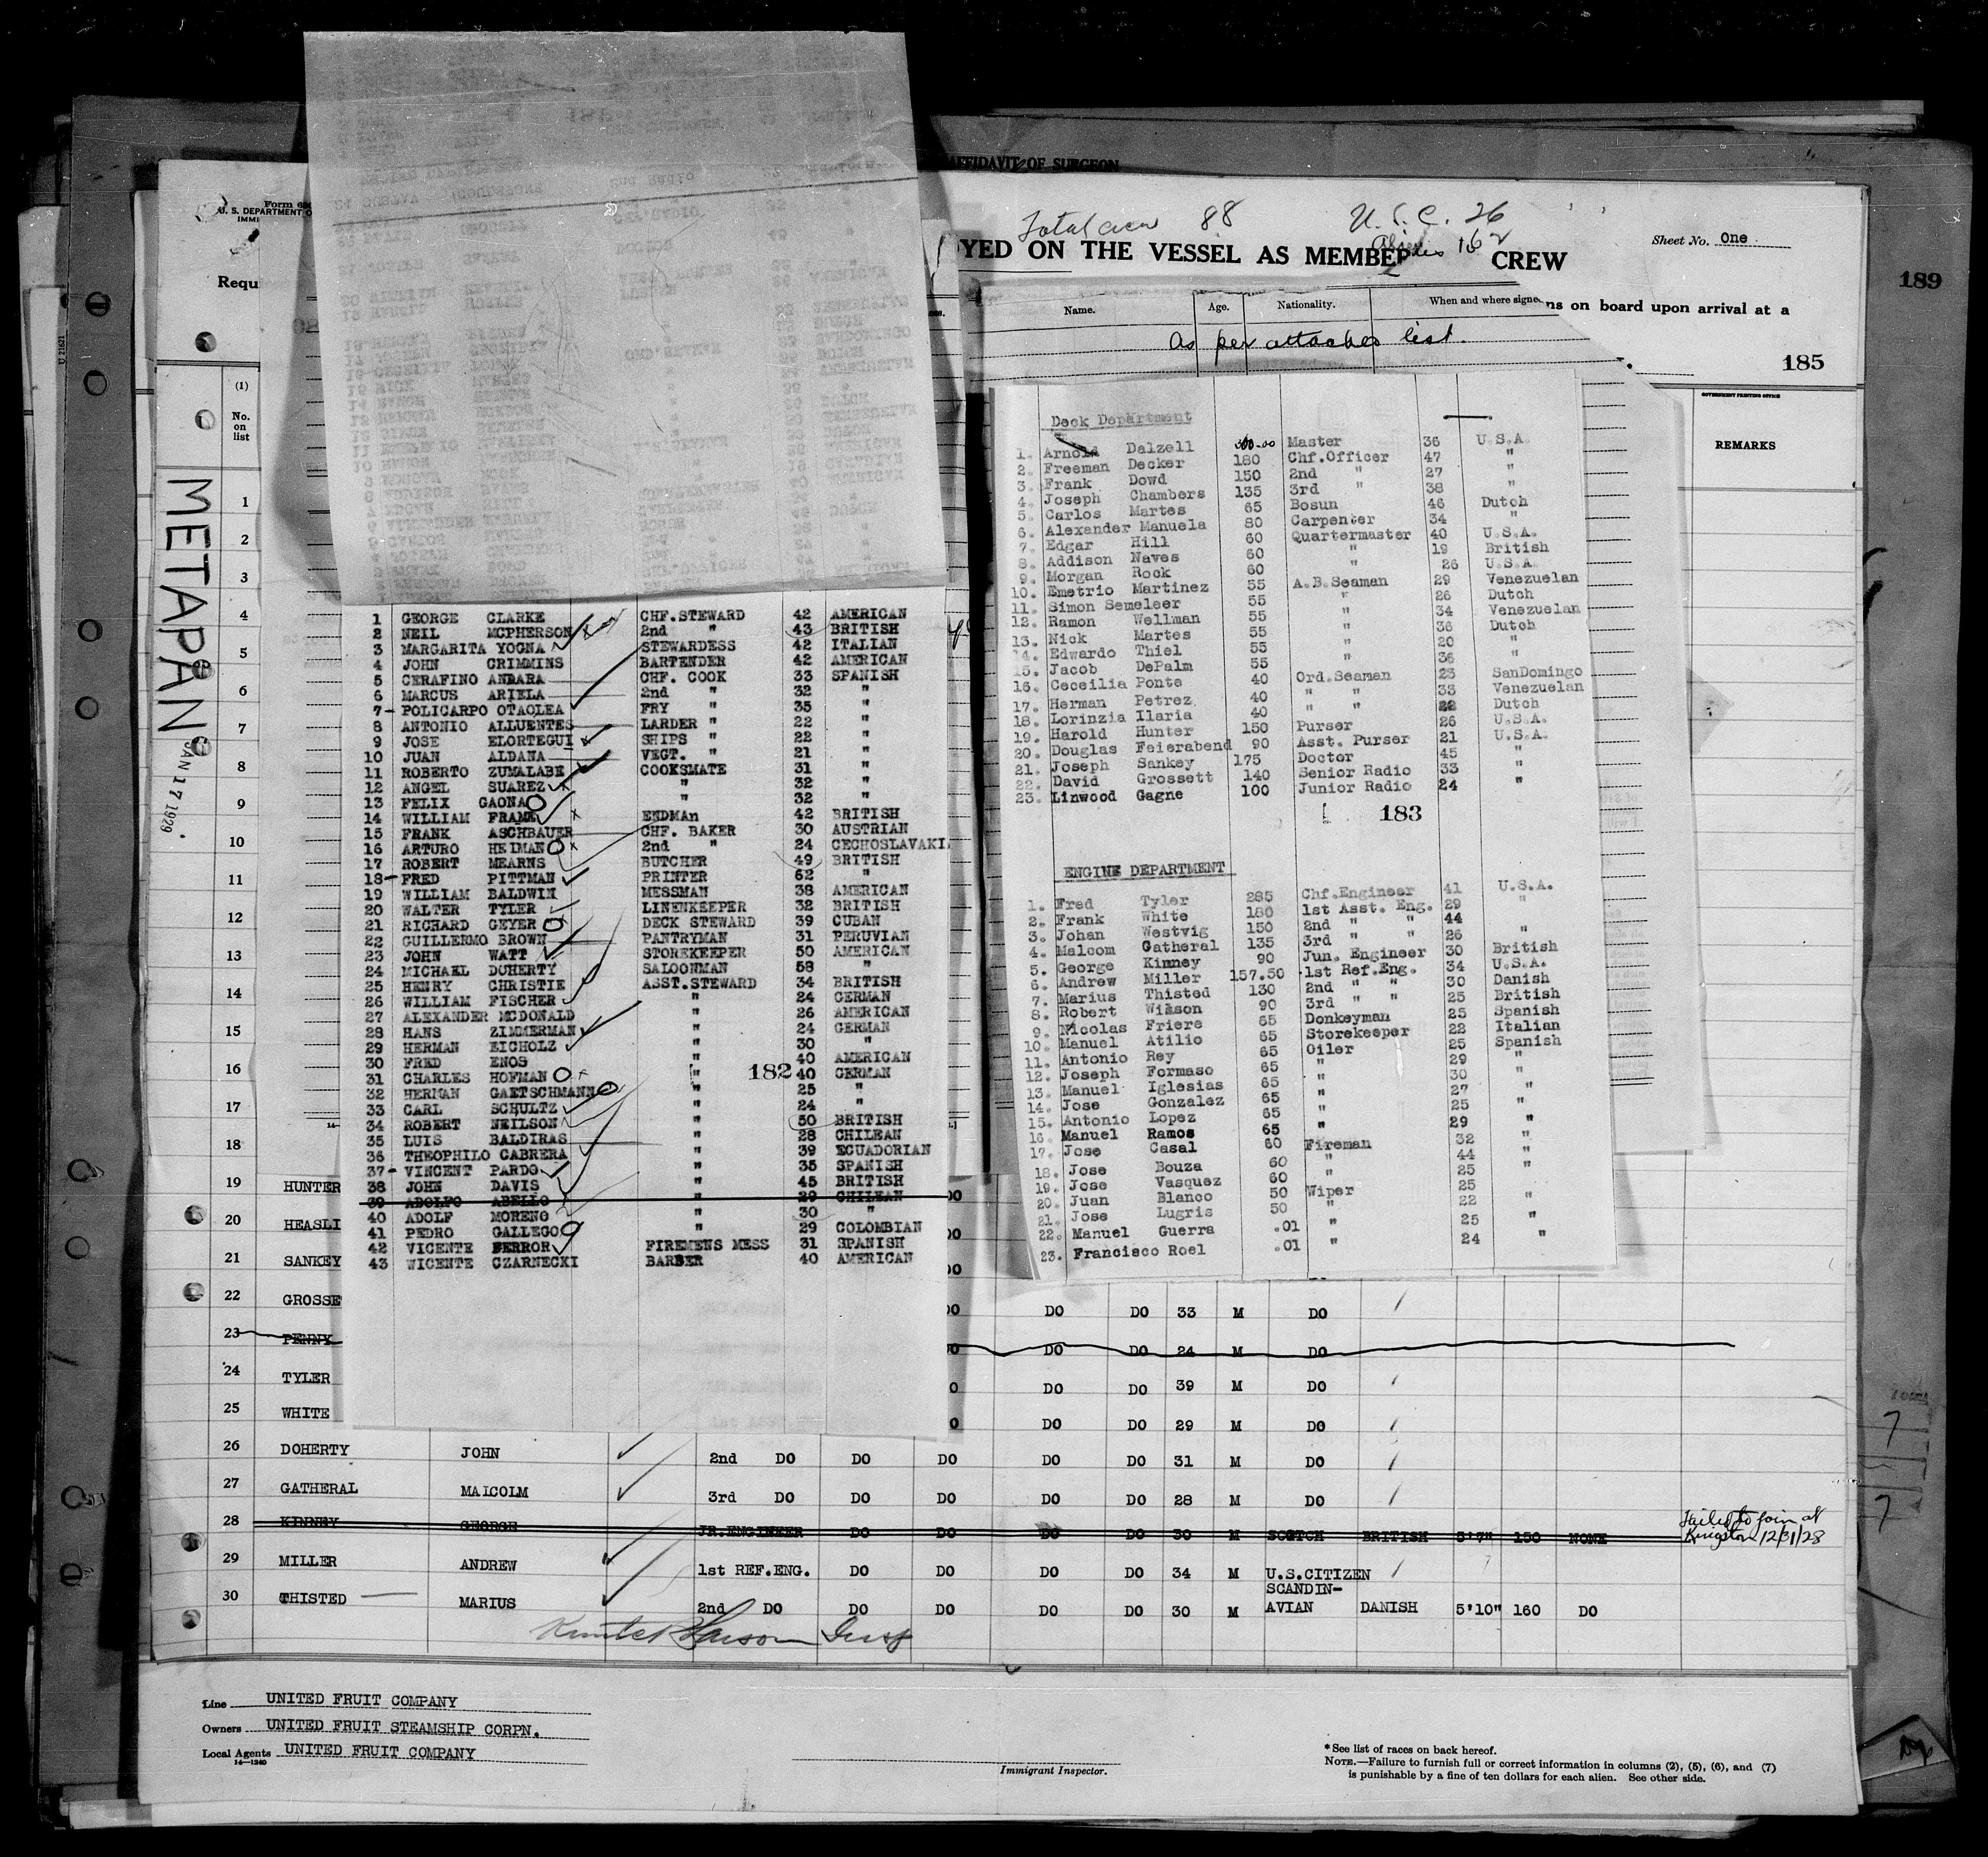 AFFIDAVIT OF SURGEON
Total crew 88 U.S.C. 26
Aliens 62
Form 680
U. S. DEPARTMENT O
IMMI
YED ON THE VESSEL AS MEMBER CREW
Sheet No. One
189
Requi
ns on board upon arrival at a
185
Name. Age. Nationality. When and where signe
As per attached list.
(1)
No.
on
list
GOVERNMENT PRINTING OFFICE
REMARKS
METAPAN
JAN 17 1929
1
2
3
4
5
6
7
8
9
10
11
12
13
14
15
16
17
18
1 GEORGE CLARKE CHF.STEWARD 42 AMERICAN
2 NEIL MCPHERSON 2nd " 43 BRITISH
3 MARGARITA YOGNA STEWARDESS 42 ITALIAN
4 JOHN CRIMMINS BARTENDER 42 AMERICAN
5 CERAFINO ANDARA CHF. COOK 33 SPANISH
6 MARCUS ARIELA 2nd " 32 "
7 - POLICARPO OTAOLEA FRY " 35 "
8 ANTONIO ALLUENTES LARDER " 22 "
9 JOSE ELORTEGUI SHIPS " 22 "
10 JUAN ALDANA VEGT. " 21 "
11 ROBERTO ZUMALABE COOKSMATE 31 "
12 ANGEL SUAREZ " 32 "
13 FELIX GAONA " 32 "
14 WILLIAM FRANK ENDMAn 42 BRITISH
15 FRANK ASCHBAUER CHF. BAKER 30 AUSTRIAN
16 ARTURO HEIMAN 2nd " 24 CECHOSLAVAKI
17 ROBERT MEARNS BUTCHER 49 BRITISH
18 - FRED PITTMAN PRINTER 62 "
19 WILLIAM BALDWIN MESSMAN 38 AMERICAN
20 WALTER TYLER LINENKEEPER 32 BRITISH
21 RICHARD GEYER DECK STEWARD 39 CUBAN
22 GUILLERMO BROWN PANTRYMAN 31 PERUVIAN
23 JOHN WATT STOREKEEPER 50 AMERICAN
24 MICHAEL DOHERTY SALOONMAN 58 "
25 HENRY CHRISTIE ASST.STEWARD 34 BRITISH
26 WILLIAM FISCHER " 24 GERMAN
27 ALEXANDER MCDONALD " 26 AMERICAN
28 HANS ZIMMERMAN " 24 GERMAN
29 HERMAN EICHOLZ " 30 "
30 FRED ENOS " 40 AMERICAN
31 CHARLES HOFMAN " 182 40 GERMAN
32 HERMAN GAETSCHMANN " 25 "
33 CARL SCHULTZ " 24 "
34 ROBERT NEILSON " 50 BRITISH
35 LUIS BALDIRAS " 28 CHILEAN
36 THEOPHILO CABRERA " 39 ECUADORIAN
37 - VINCENT PARDO " 35 SPANISH
38 JOHN DAVIS " 45 BRITISH
39 ADOLFO ABELLO " 29 CHILEAN
40 ADOLF MORENO " 30 "
41 PEDRO GALLEGO " 29 COLOMBIAN
42 VICENTE FERROR FIREMENS MESS 31 SPANISH
43 WICENTE CZARNECKI BARBER 40 AMERICAN
Deck Department
1. Arnold Dalzell 300.00 Master 36 U.S.A.
2. Freeman Decker 180 Chf.Officer 47 "
3. Frank Dowd 150 2nd " 27 "
4. Joseph Chambers 135 3rd " 38 "
5. Carlos Martes 65 Bosun 46 Dutch
6. Alexander Manuela 80 Carpenter 34 "
7. Edgar Hill 60 Quartermaster 40 U.S.A.
8. Addison Naves 60 " 19 British
9. Morgan Rock 60 " 26 U.S.A.
10. Emetrio Martinez 55 A.B.Seaman 29 Venezuelan
11. Simon Semeleer 55 " 26 Dutch
12. Ramon Wellman 55 " 34 Venezuelan
13. Nick Martes 55 " 36 Dutch
14. Edwardo Thiel 55 " 20 "
15. Jacob DePalm 55 " 36 "
16. Ceceilia Ponte 40 Ord.Seaman 23 SanDomingo
17. Herman Petrez 40 " " 33 Venezuelan
18. Lorinzia Ilaria 40 " " 22 Dutch
19. Harold Hunter 150 Purser 26 U.S.A.
20. Douglas Feierabend 90 Asst. Purser 21 U.S.A.
21. Joseph Sankey 175 Doctor 45 "
22. David Grossett 140 Senior Radio 33 "
23. Linwood Gagne 100 Junior Radio 24 "
183
ENGINE DEPARTMENT
1. Fred Tyler 285 Chf.Engineer 41 U.S.A.
2. Frank White 180 1st Asst. Eng. 29 "
3. Johan Westvig 150 2nd " " 44
4. Malcom Gatheral 135 3rd " " 26 "
5. George Kinney 90 Jun. Engineer 30 British
6. Andrew Miller 157.50 1st Ref.Eng. 34 U.S.A.
7. Marius Thisted 130 2nd " " 30 Danish
8. Robert Wilson 90 3rd " " 25 British
9. Nicolas Friere 65 Donkeyman 25 Spanish
10. Manuel Atilio 65 Storekeeper 22 Italian
11. Antonio Rey 65 Oiler 25 Spanish
12. Joseph Formaso 65 " 29 "
13. Manuel Iglesias 65 " 30 "
14. Jose Gonzalez 65 " 27 "
15. Antonio Lopez 65 " 25 "
16. Manuel Ramos 65 " 29 "
17. Jose Casal 60 Fireman 32 "
18. Jose Bouza 60 " 44 "
19. Jose Vasquez 60 " 25 "
20. Juan Blanco 50 Wiper 25
21. Jose Lugris 50 " 22 "
22. Manuel Guerra .01 " 25 "
23. Francisco Roel .01 " 24 "
19 HUNTER
20 HEASLI
21 SANKEY
22 GROSSE DO DO 33 M DO
23 PENNY DO DO 24 M DO
24 TYLER DO DO 39 M DO
25 WHITE DO DO 29 M DO
26 DOHERTY JOHN 2nd DO DO DO DO DO 31 M DO
27 GATHERAL MALCOLM 3rd DO DO DO DO DO 28 M DO
28 KINNEY GEORGE JR.ENGINEER DO DO DO DO 30 M SCOTCH BRITISH 5'7" 150 NONE Failed to join at Kingston 12/31/28
29 MILLER ANDREW 1st REF.ENG. DO DO DO DO 34 M U.S.CITIZEN
30 THISTED MARIUS 2nd DO DO DO DO DO 30 M SCANDIN-AVIAN DANISH 5'10" 160 DO
Line UNITED FRUIT COMPANY
Owners UNITED FRUIT STEAMSHIP CORPN.
Local Agents UNITED FRUIT COMPANY
14—1240
Immigrant Inspector.
* See list of races on back hereof.
NOTE.—Failure to furnish full or correct information in columns (2), (5), (6), and (7)
is punishable by a fine of ten dollars for each alien. See other side.